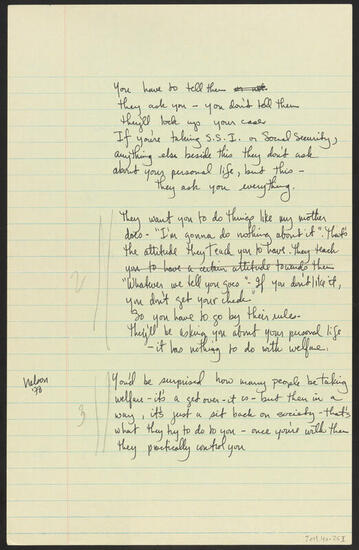 You have to tell them
they ask you - you don't tell them
they'll lock up your case
If you're taking S.S.I. or Social Security,
anything else beside this they don't ask
about your personal life, but this -
they ask you everything.
They want you to do things like my mother
does - "I'm gonna do nothing about it". That's
the attitude they teach you to have. They teach
you to have a certain attitude towards them
"Whatever we tell you goes - If you don't like it,
you don't get your check."
So you have to go by their rules -
they'll be asking you about your personal life
- it has nothing to do with welfare.
2
Nelson
'78
3
You'd be surprised how many people be taking
welfare - it's a get over - it is - but then in a
way, it's just a sit back on society - that's
what they try to do to you - once you're with them
they practically control you